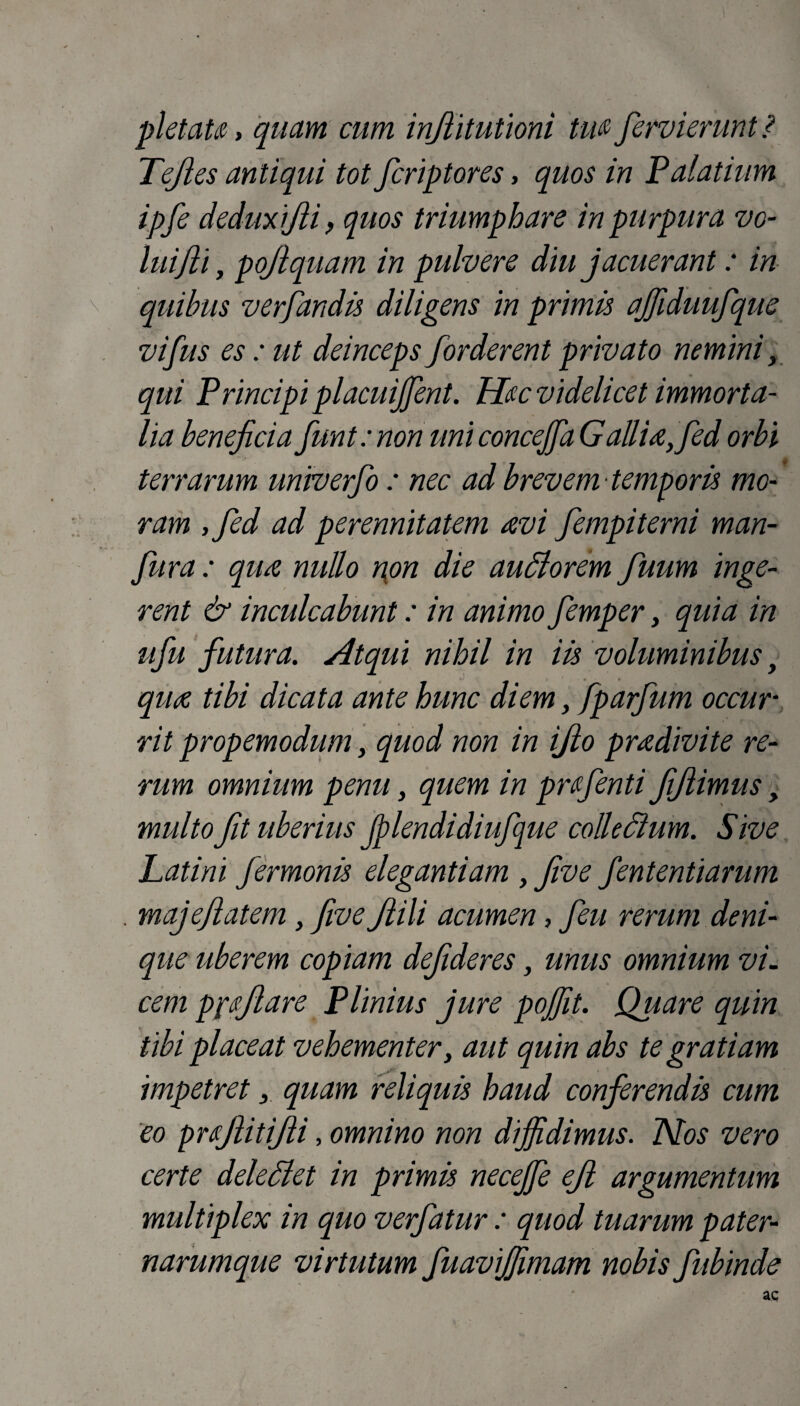 pletatæ, quam cum inſtitutioni tuæ ſervierunt?
Teſtes antiqui tot ſcriptores, quos in Palatium
ipſe deduxiſti, quos triumphare in purpura vo-
luiſti, poſtquam in pulvere diu jacuerant: in
quibus verſandis diligens in primis aſſiduuſque
viſus es: ut deinceps ſorderent privato nemini,
qui Principi placuiſſent. Hæc videlicet immorta-
lia beneficia ſunt: non uni conceſſa Galliæ, ſed orbi
terrarum univerſo: nec ad brevem temporis mo-
ram, ſed ad perennitatem ævi ſempiterni man-
ſura: quæ nullo non die auctorem ſuum inge-
rent & inculcabunt: in animo ſemper, quia in
uſu futura. Atqui nihil in iis voluminibus,
quæ tibi dicata ante hunc diem, ſparſum occur-
rit propemodum, quod non in iſto prædivite re-
rum omnium penu, quem in præſenti ſiſtimus,
multo ſit uberius ſplendidiuſque collectum. Sive
Latini ſermonis elegantiam, ſive ſententiarum
majeſtatem, ſive ſtili acumen, ſeu rerum deni-
que uberem copiam deſideres, unus omnium vi-
cem præſtare Plinius jure poſſit. Quare quin
tibi placeat vehementer, aut quin abs te gratiam
impetret, quam reliquis haud conferendis cum
eo præſtitiſti, omnino non diffidimus. Nos vero
certe delectet in primis neceſſe eſt argumentum
multiplex in quo verſatur: quod tuarum pater-
narumque virtutum ſuaviſſimam nobis ſubinde
ac